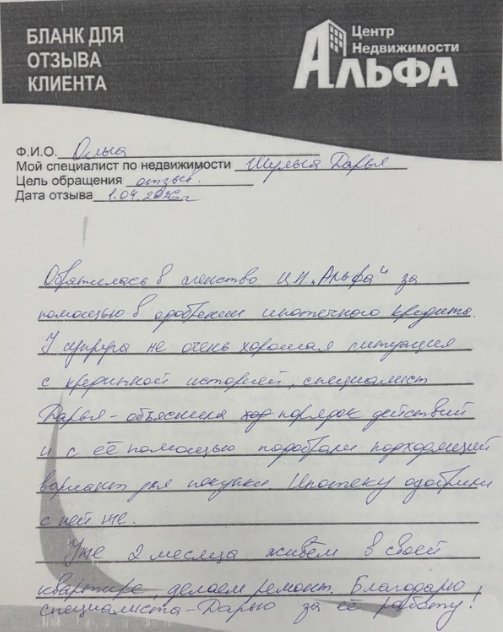 БЛАНК ДЛЯ
ОТЗЫВА
КЛИЕНТА
Центр
Недвижимости
АЛЬФА
Ф.И.О. Ольга
Мой специалист по недвижимости Шульга Дарья
Цель обращения отзыв.
Дата отзыва 1.04.2026г
Обратилась в агенство ЦН „Альфа“ за
помощью в одобрении ипотечного кредита.
У супруга не очень хорошая ситуация
с кредитной историей, специалист
Дарья - объяснила ход порядок действий
и с её помощью подобрали подходящий
вариант для покупки. Ипотеку одобрили
с ней же.
Уже 2 месяца живём в своей
квартире, делаем ремонт. Благодарю
специалиста - Дарью за её работу!